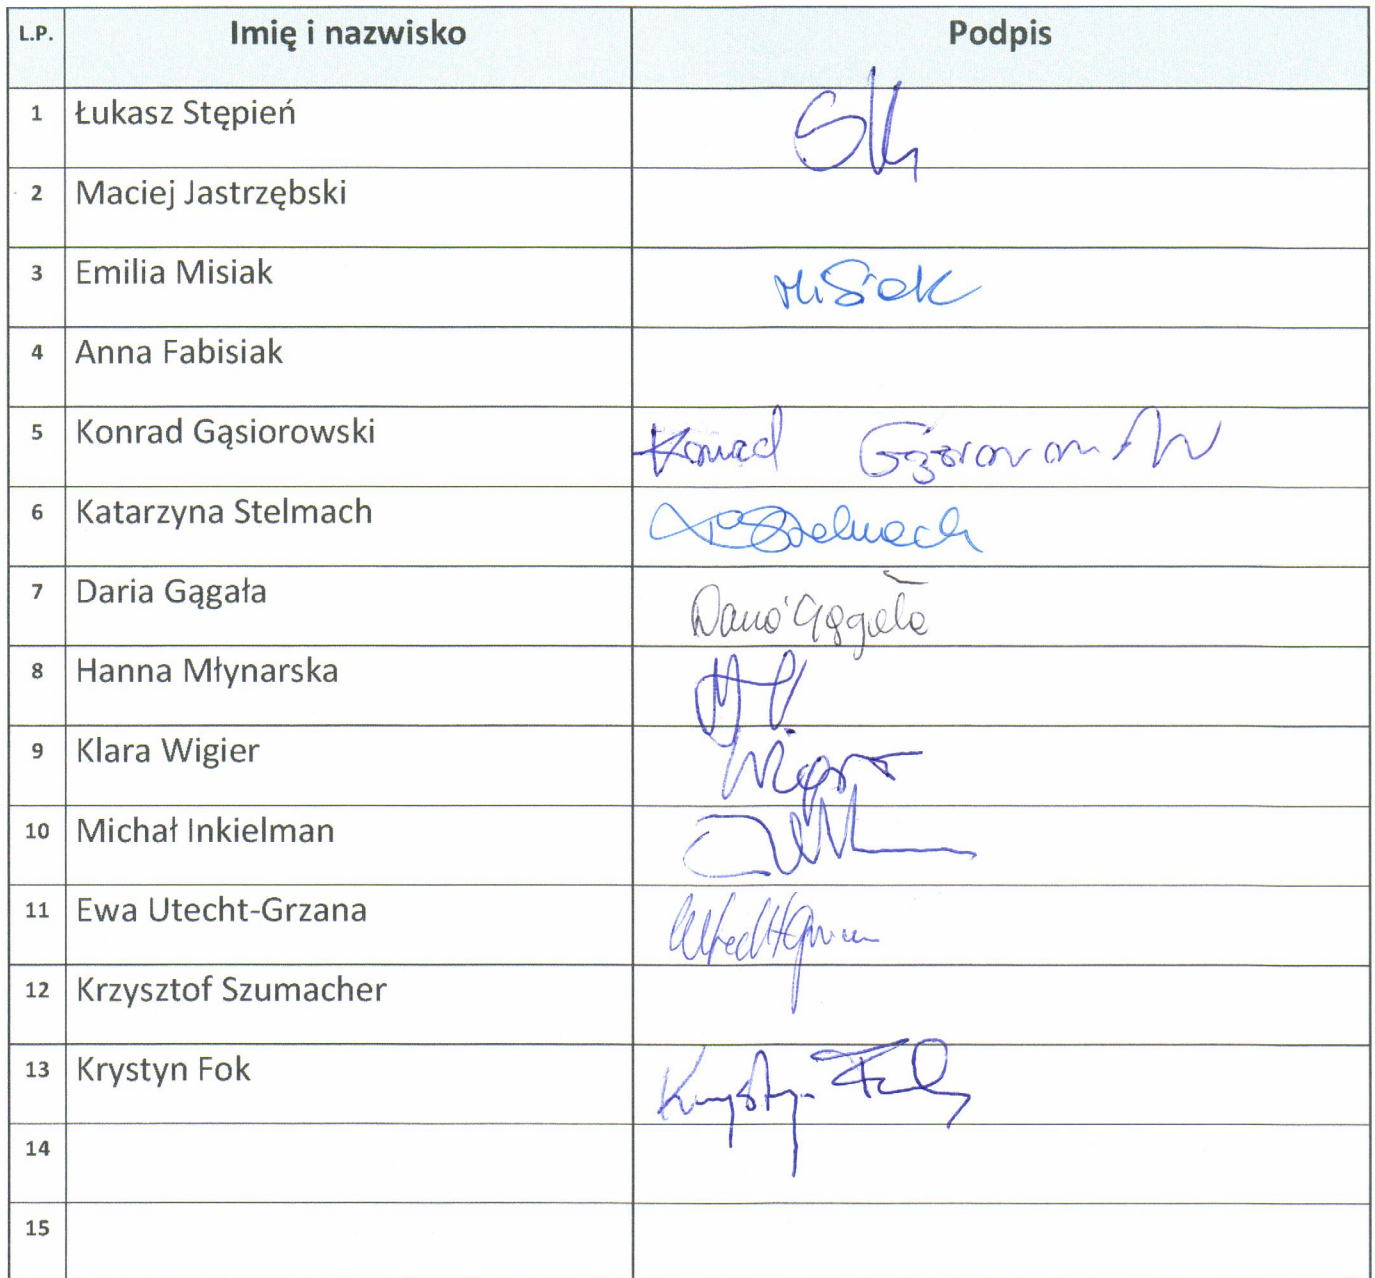 L.P. Imię i nazwisko Podpis
1 Łukasz Stępień
2 Maciej Jastrzębski
3 Emilia Misiak Misiak
4 Anna Fabisiak
5 Konrad Gąsiorowski Konrad
6 Katarzyna Stelmach Stelmach
7 Daria Gągała Daria Gągała
8 Hanna Młynarska
9 Klara Wigier
10 Michał Inkielman
11 Ewa Utecht-Grzana
12 Krzysztof Szumacher
13 Krystyn Fok Krystyn Fok
14
15